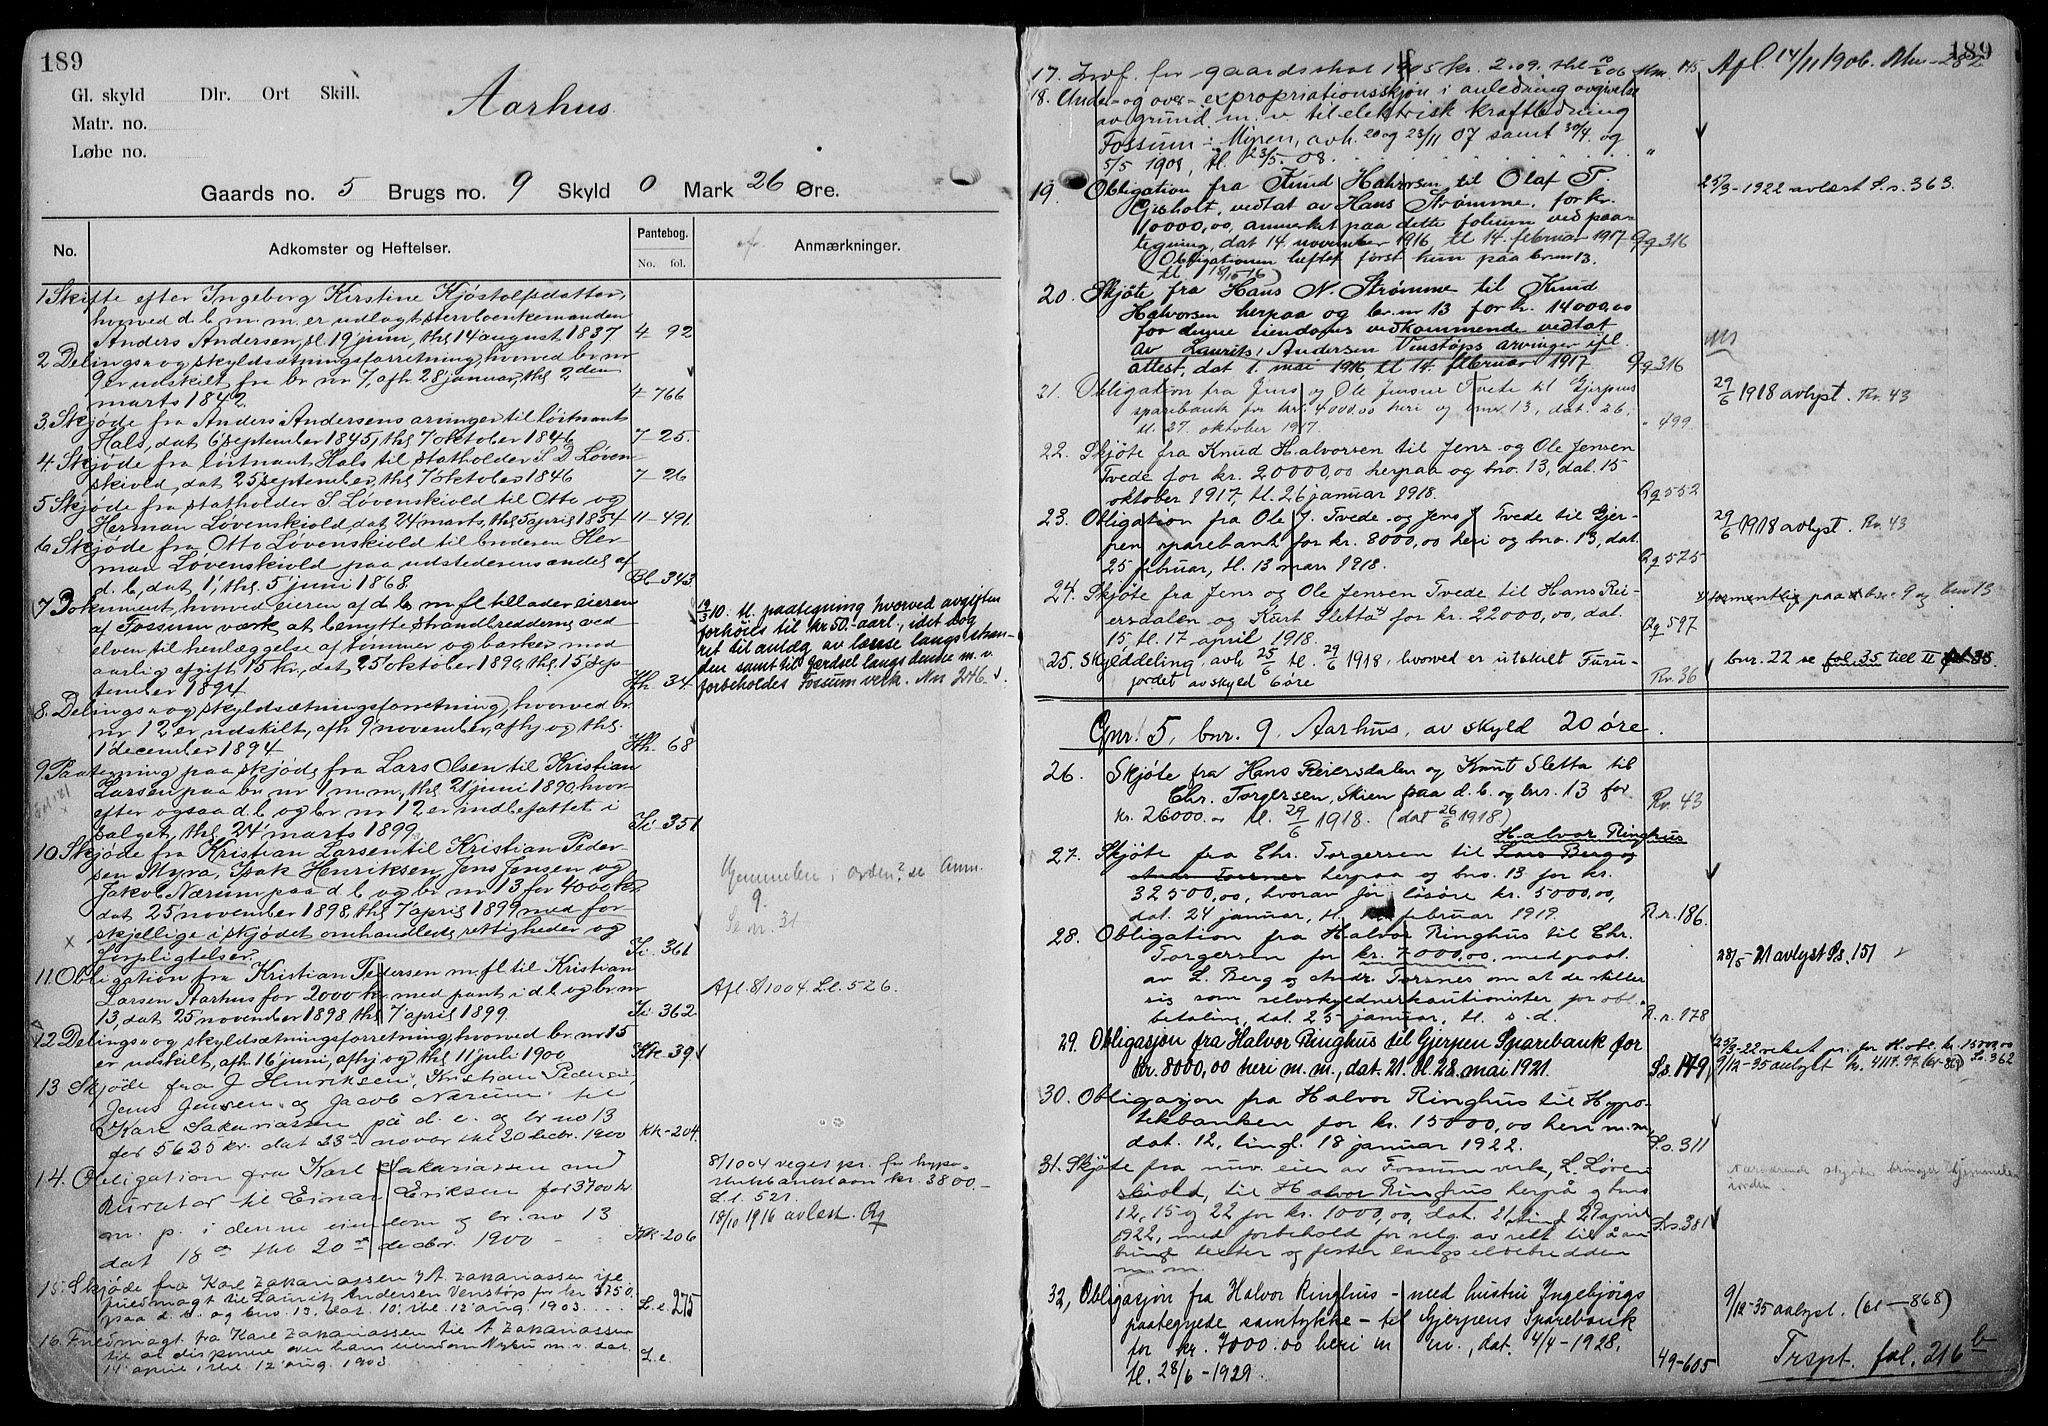 189
Gl. skyld Dlr. Ort Skill.
Matr. no.
Løbe no.
Aarhus
Gaards no. 5 Brugs no. 9 Skyld 0 Mark 26 Øre.
No. Adkomster og Heftelser. Pantebog. No. fol. Anmærkninger.
1 Skifte efter Ingeborg Kirstine Kjøstolfsdatter,
hvorved d. b. m. m. er udlagt sterrboenkemanden
Anders Andersen, sl. 19 juni, thl 14 august 1837 4- 92
2 Delings- og skyldsætningsforretning, hvorved br. nr
9 er udskilt fra br nr 7, afh 28 januar, thl 2den
marts 1842. 4-766
3. Skjøde fra Anders Andersens arvinger til løitnant
Hals, dat 6 september 1845, thl 7 oktober 1846 7- 25.
4 Skjøde fra løitnant Hals til statholder S D Løven
skiold, dat 25 september, thl 7 oktober 1846 7- 26
5 Skjøde fra statholder S. Løvenskiold til Otto og
Herman Løvenskiold, dat 24 marts, thl 5 april 1854 11-491.
6 Skjøde fra Otto Løvenskiold til broderen Her-
man Løvenskiold paa udstederens andel af
d. b, dat 1, thl 5 juni 1868. Bb-343
7 Dokument, hvorved eieren af d. b m. fl tillader eieren
af Fossum værk at benytte strandbredderne ved
elven til henlæggelse af tømmer og barker mod
aarlig afgift 15 kr, dat 25 oktober 1890, thl 15 sep
tember 1894 Hh. 34
19/3 10. tl. paategning hvorved avgiften
forhöies til kr 50. aarl., idet dog
ret til anlæg av lænse langs stran-
den samt til gjerdsel langs denne m. v.
forbeholdes Fossum verk. Nn 246.
8. Delings- og skyldsætningsforretning, hvorved br.
nr 12 er udskilt, afh 9 november, afhj og thl.
1 december 1894 Hh. 68
9 Paategning paa skjøde fra Lars Olsen til Kristian
Larsen paa br nr 1 m. m, thl 21 juni 1890, hvor-
efter ogsaa d. b og br nr 12 er indbefattet i
salget, thl 24 marts 1899 Ii-351
10. Skjøde fra Kristian Larsen til Kristian Peder-
sen Myra, Isak Henriksen, Jens Jensen og
Jakob Nærum paa d. b og br nr 13 for 4000 kr,
dat 25 november 1898, thl 7 april 1899 med for
skjellige i skjødet omhandlede rettigheder og
forpligtelser. Ii-361
Hjemmelen i orden? se Anm.
9.
Se nr. 31
11. Obligation fra Kristian Pedersen m. fl til Kristian
Larsen Aarhus for 2000 kr med pant i d. b og br. nr
13, dat 25 november 1898 thl 7 april 1899 Ii-362
Afl. 8/10 04 Ll. 526.
12 Delings- og skyldsætningsforretning, hvorved br. nr 15
er udskilt, afh 16 juni, afhj og thl 11 juli 1900 Kk-39
13 Skjøde fra J Henriksen, Kristian Pedersen,
Jens Jensen og Jacob Nærum til
Karl Sakariassen på d. e. og br no 13
for 5625 kr. dat 23 novbr thl 20 decbr. 1900 KK-204.
14. Obligation fra Karl Sakariassen med
kurator til Einar Eriksen for 3700 kr
m. p. i denne eiendom og br. no 13
dat 18 thl 20 decbr. 1900 - Kk-206
8/10 04 veget pr. for hypo-
thekbanklaan kr. 3800.-
Ll. 521.
18/10 1916 avlæst. Qq
15. Skjøde fra Karl Zakariassen v/ A. Zakariassen ifl
fuldmagt til Laurits Andersen Venstøp for kr 5250.
paa d. b. og bno. 13. dat. 10. thl. 12 aug. 1903. .... L.e. 275
16. Fuldmagt fra Karl Zakariassen til A Zakariassen
til at disponere over hans eiendom Nybu m. v. dat.
14 april, thl 12 aug. 1903 L.e.
189
17. Livöf. for gaardsskat 1905 kr. 2.09. thl 20/2 06 Mm. 145 Afl. 14/11 1906. Mm-282
18. Under- og over- expropriationsskjøn i anledning avgivelse
av grund m. v til elektrisk kraftledning
Fossum - Mipen, avh. 20 og 23/11 07 samt 30/4. og
5/5 1908, tl. 23/5. 08. . . . "
19. Obligation fra Knud Halvorsen til Olaf P.
Gisholt, vedtat av Hans Strømme, for kr.
10000,00, anmerket paa dette folium ved paa-
tegning, dat 14. november 1916, tl 14. februar 1917 Qq 316
(Obligationen heftet først kun paa bnr 13.
tl. 18/10-16)
25/3-1922 avlæst S.s. 363.
20. Skjøte fra Hans N. Strømme til Knud
Halvorsen herpaa og br. nr 13 for kr. 14000,00
for denne eiendoms vedkommende vedtat
av Laurits Andersen Venstøps arvinger ifl.
attest, dat 1. mai 1916, tl 14. februar 1917. Qq 316
21. Obligation fra Jens og Ole Jensen Tvede til Gjerpens
sparebank for kr. 4000,00 heri og bnr. 13, dat. 26.
tl. 27. oktober 1917. " 499
29/6 1918 avlyst. Rr. 43
22. Skjøte fra Knud Halvorsen til Jens og Ole Jensen
Tvede for kr. 20000,00 herpaa og bno. 13, dat. 15
oktober 1917, tl. 26 januar 1918. Qq 552
23. Obligation fra Ole J. Tvede og Jens J Tvede til Gjer-
pen sparebank for kr. 8000,00 heri og bno. 13, dat.
25 februar, tl. 13 mars 1918. Qq 575
29/6 1918 avlyst. Rr. 43
24. Skjøte fra Jens og Ole Jensen Tvede til Hans Rei-
ersdalen og Knut Sletta for kr. 22000,00, dat.
15. tl. 17 april 1918. Qq 597
25. Skylddeling, avh 25/6 tl. 29/6 1918, hvorved er utskilt Furu-
jordet av skyld 6 øre Rr. 36
bnr. 22 se fol. 35 till II
Gnr. 5, bnr. 9. Aarhus, av skyld 20 øre.
26. Skjøte fra Hans Reiersdalen og Knut Sletta til
Chr. Torgersen, Skien paa d. b. og bnr. 13 for
kr. 26000.00 tl. 29/6 1918. (dat 26/6 1918) Rr. 43
Halvor Ringhus
27. Skjøte fra Chr. Torgersen til Lars Berg og
Andr. Torsnes herpaa og bno. 13 for kr.
32500,00, hvorav for løsøre kr. 5000,00,
dat. 24 januar, tl. februar 1919. R.r. 186.
28. Obligation fra Halvor Ringhus til Chr.
Torgersen for kr. 7000,00, med paat.
av L. Berg og Andr. Torsnes om at de stiller
sig som selvskyldnerkautionister for obl.
betaling, dat. 25 januar, tl. s. d. R.r. 178
28/5-21 avlyst Ss. 151
29. Obligasjon fra Halvor Ringhus til Gjerpen Sparebank for
kr. 8000,00 heri m. m., dat. 21. tl. 28. mai 1921. S.s. 149,
25/3-22 veket pr. for H. obl. kr. 15000,00 S.s. 362
9/12-35 avlyst
30. Obligasjon fra Halvor Ringhus til Hypo-
tekbanken for kr. 15000,00 heri m. m,
dat. 12, tingl. 18 januar 1922. S.s 311
31. Skjøte fra nuv. eier av Fossum verk, L. Løven
skiold, til Halvor Ringhus herpå og bno
12, 15 og 22 for kr. 1000,00, dat. 21 tingl 27 april
1922, med forbehold for selg. av rett til å an
bringe teiter og fester langs elvebredden
m. m. S.s. 381
Nærværende skjøte bringer hjemmelen
i orden.
32, Obligasjon fra Halvor Ringhus - med hustru Ingebjørgs
paategnede samtykke - til Gjerpens Sparebank
for kr. 7000.00 heri m m., dat. 4/4-1928.
tl. 28/6-1929. 49-605
9/12-35 avlyst. (61-868)
Trspt. fol. 216 b